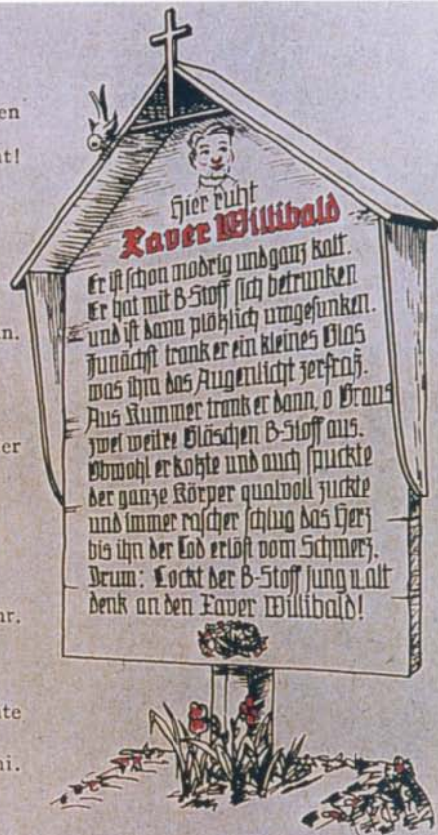 en
t!
n.
er
ar.
te
ni.
Hier ruht
Xaver Willibald
Er ist schon modrig und ganz kalt.
Er hat mit B-Stoff sich betrunken
und ist dann plötzlich umgesunken.
Zunächst trank er ein kleines Glas
was ihm das Augenlicht zerfraß.
Aus Kummer trank er dann, o Graus
zwei weitre Gläschen B-Stoff aus.
Obwohl er kotzte und auch spuckte
der ganze Körper qualvoll zuckte
und immer rascher schlug das Herz
bis ihn der Tod erlöst vom Schmerz.
Drum: Lockt der B-Stoff jung u. alt
denk an den Xaver Willibald!